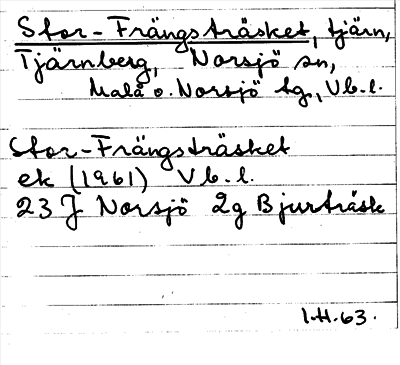 Stor-Frängsträsket, tjärn,
Tjärnberg, Norsjö sn,
Malå o. Norsjö tg., Vb.l.
Stor-Frängsträsket
ek (1961) Vb.l.
23 J Norsjö 2g Bjurträsk
I.H.63.